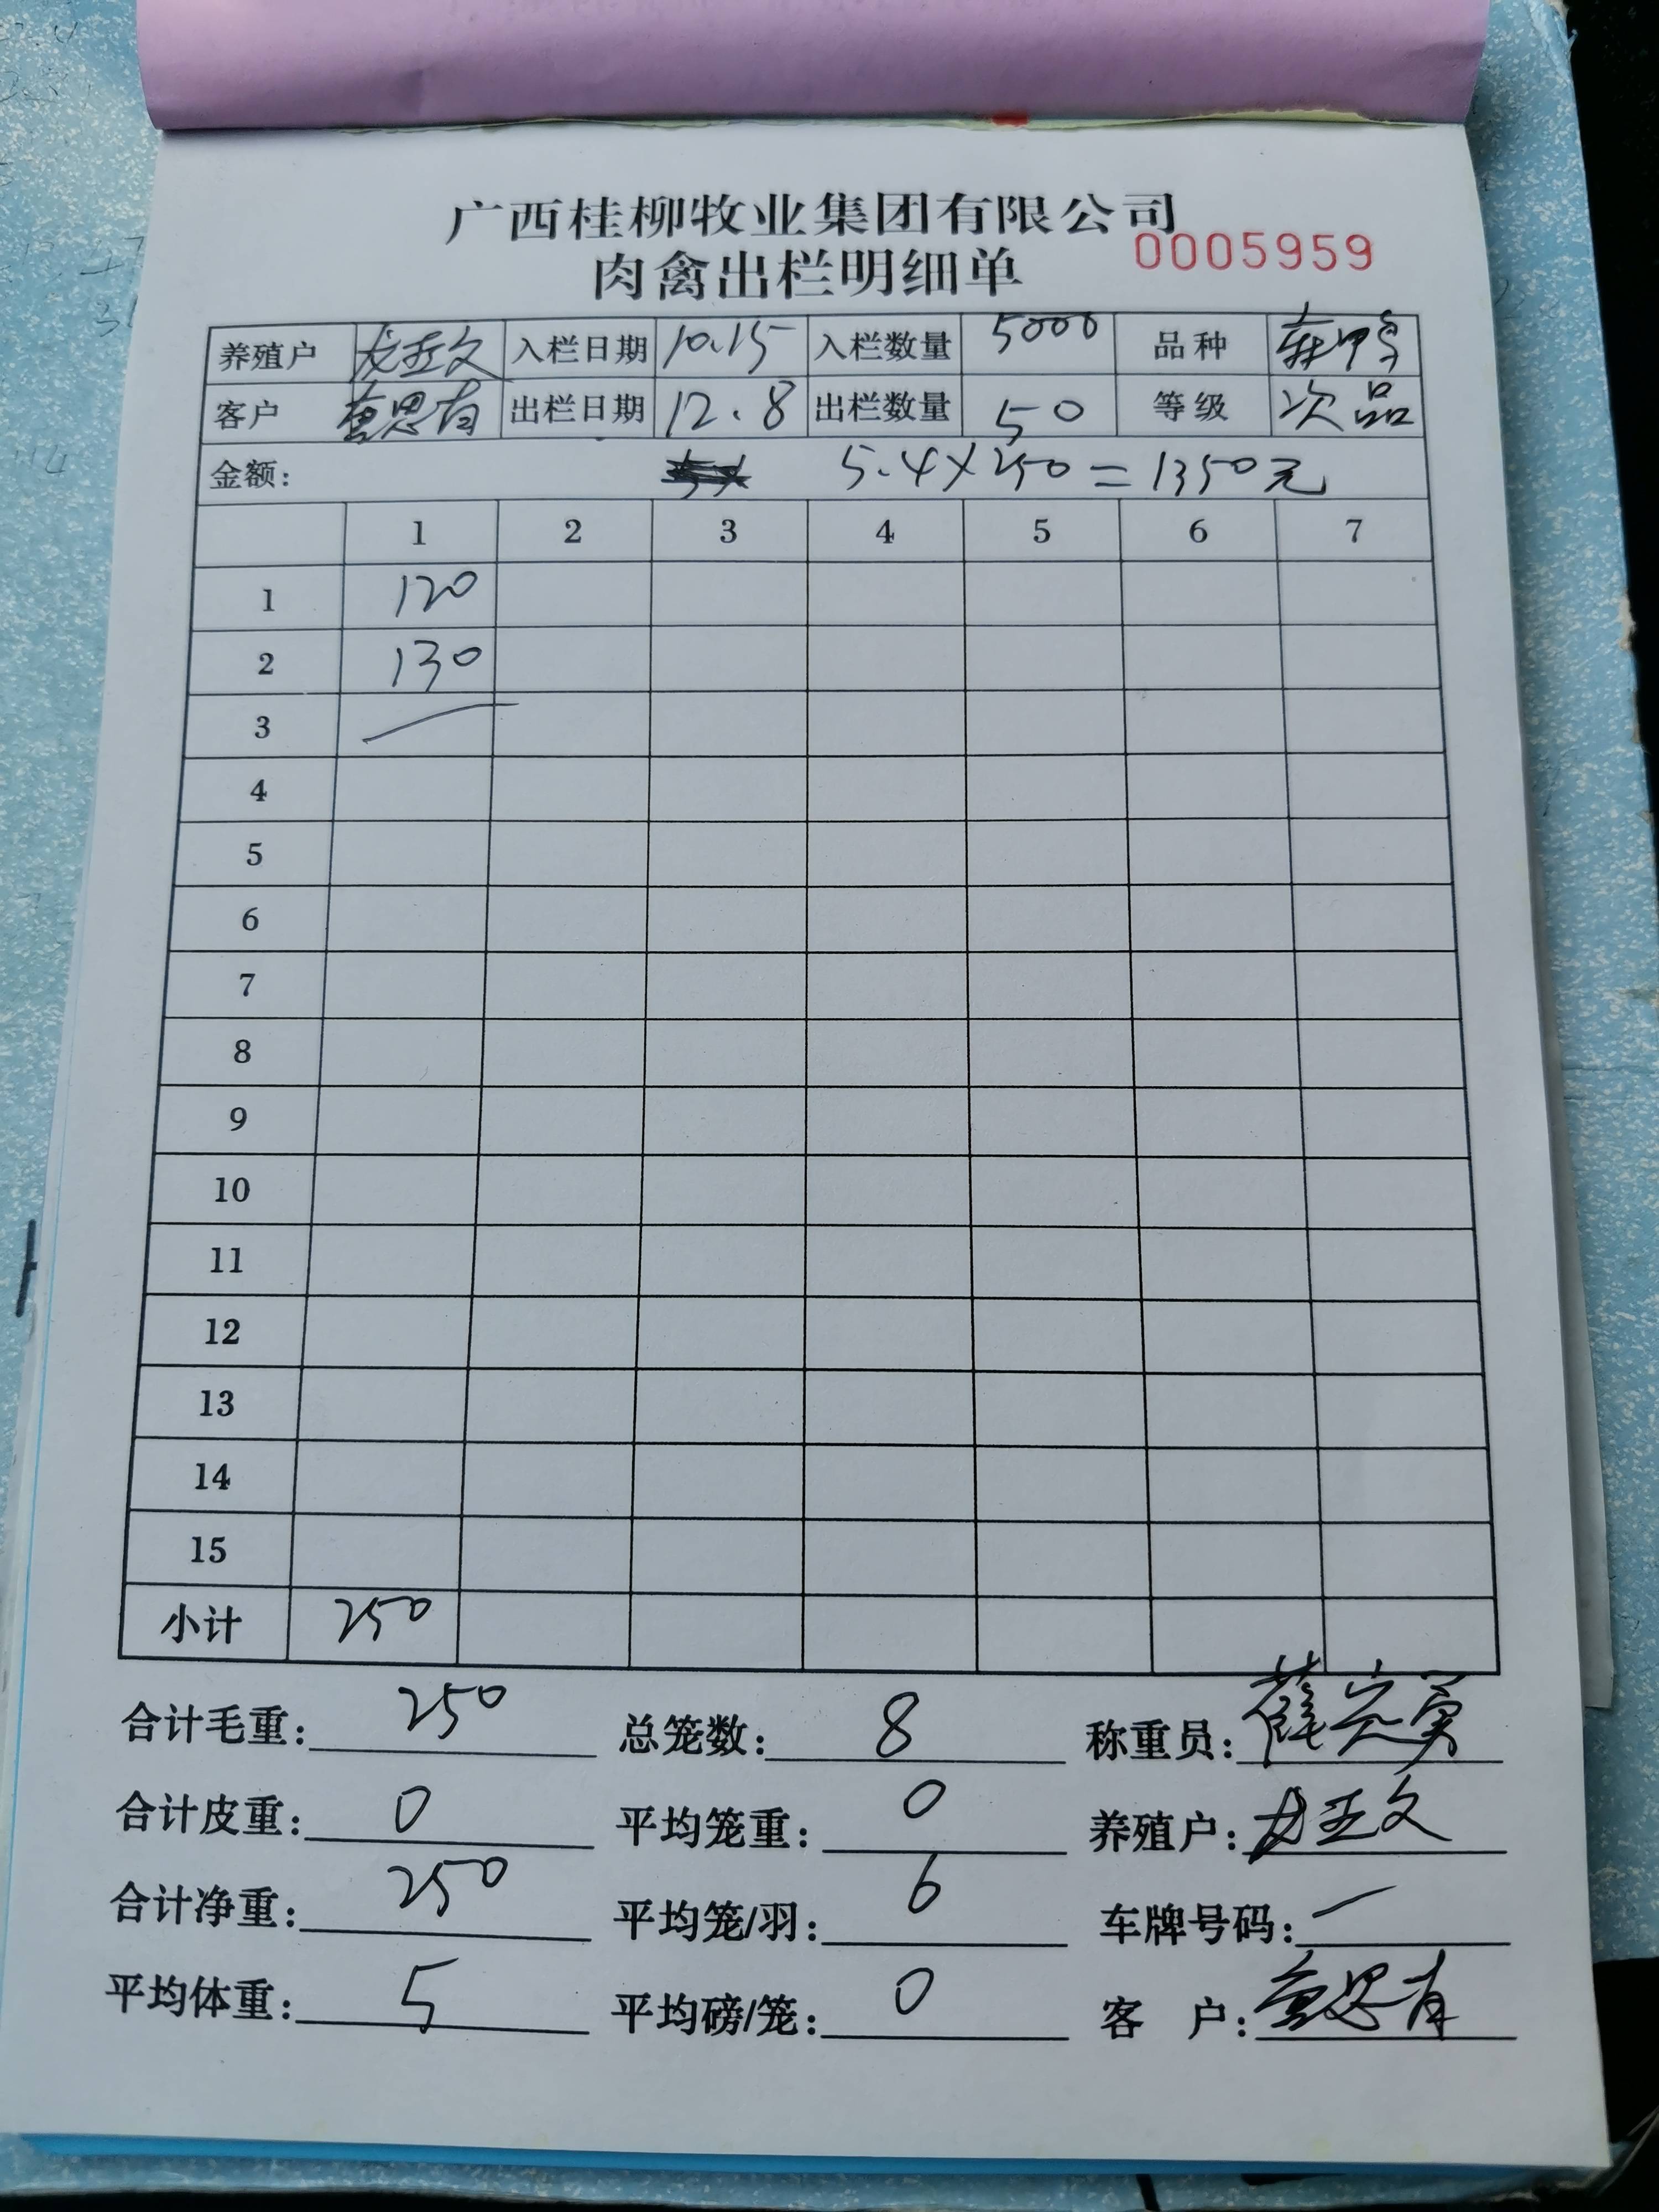 广西桂柳牧业集团有限公司
肉禽出栏明细单 0005959
养殖户 龙玉文 入栏日期 10.15 入栏数量 5000 品种
客户 思有 出栏日期 12.8 出栏数量 50 等级 次品
金额： 5.4×250=1350元
1 2 3 4 5 6 7
1 120
2 130
3
4
5
6
7
8
9
10
11
12
13
14
15
小计 250
合计毛重： 250 总笼数： 8 称重员： 薛
合计皮重： 0 平均笼重： 0 养殖户： 龙玉文
合计净重： 250 平均笼/羽： 6 车牌号码： 一
平均体重： 5 平均磅/笼： 0 客 户： 思有